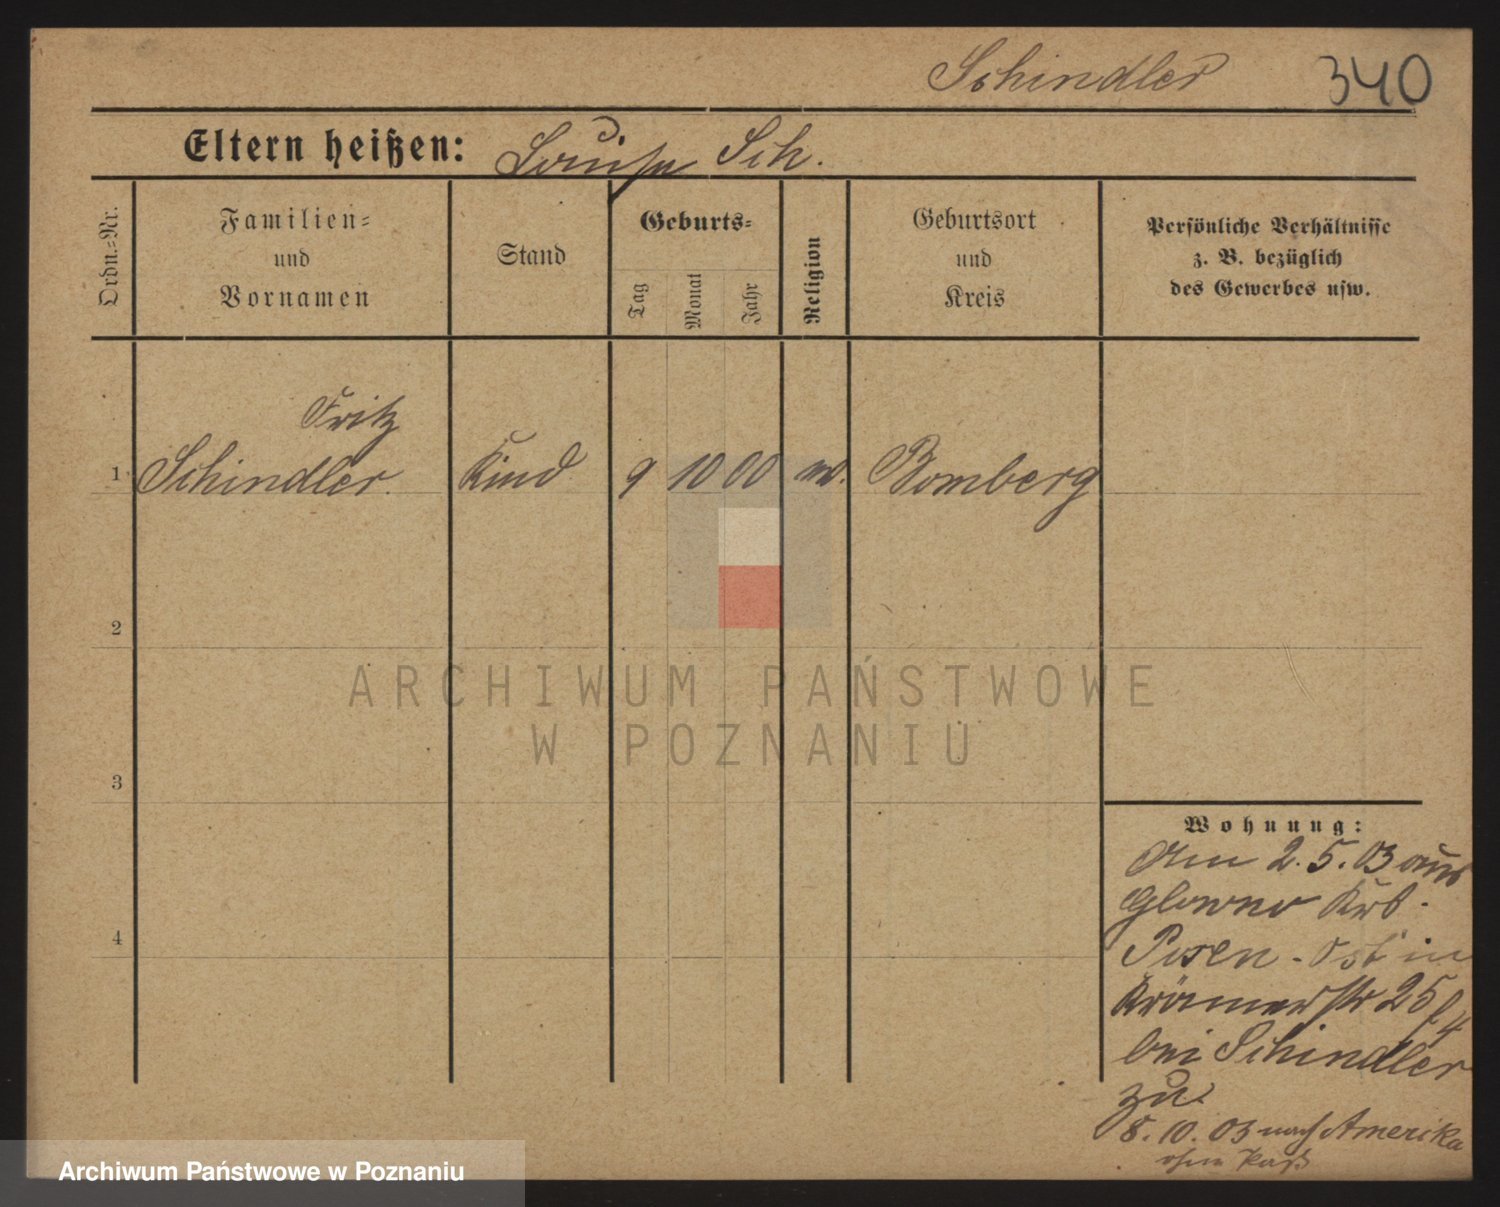 Schindler 340
Eltern heißen: Louise Sch.
Ordn.-Nr.
Familien-
und
Vornamen
Stand
Geburts-
Tag
Monat
Jahr
Religion
Geburtsort
und
Kreis
Persönliche Verhältnisse
z. B. bezüglich
des Gewerbes usw.
Fritz
1 Schindler. Kind 9 10 00 Bomberg
2
ARCHIWUM PAŃSTWOWE
W POZNANIU
3
4
Wohnung:
Am 2.5.03 aus
Glowno
Posen-Ost in
Krämerstr 25
bei Schindler
zu
8.10.03 nach Amerika
ohne Paß
Archiwum Państwowe w Poznaniu